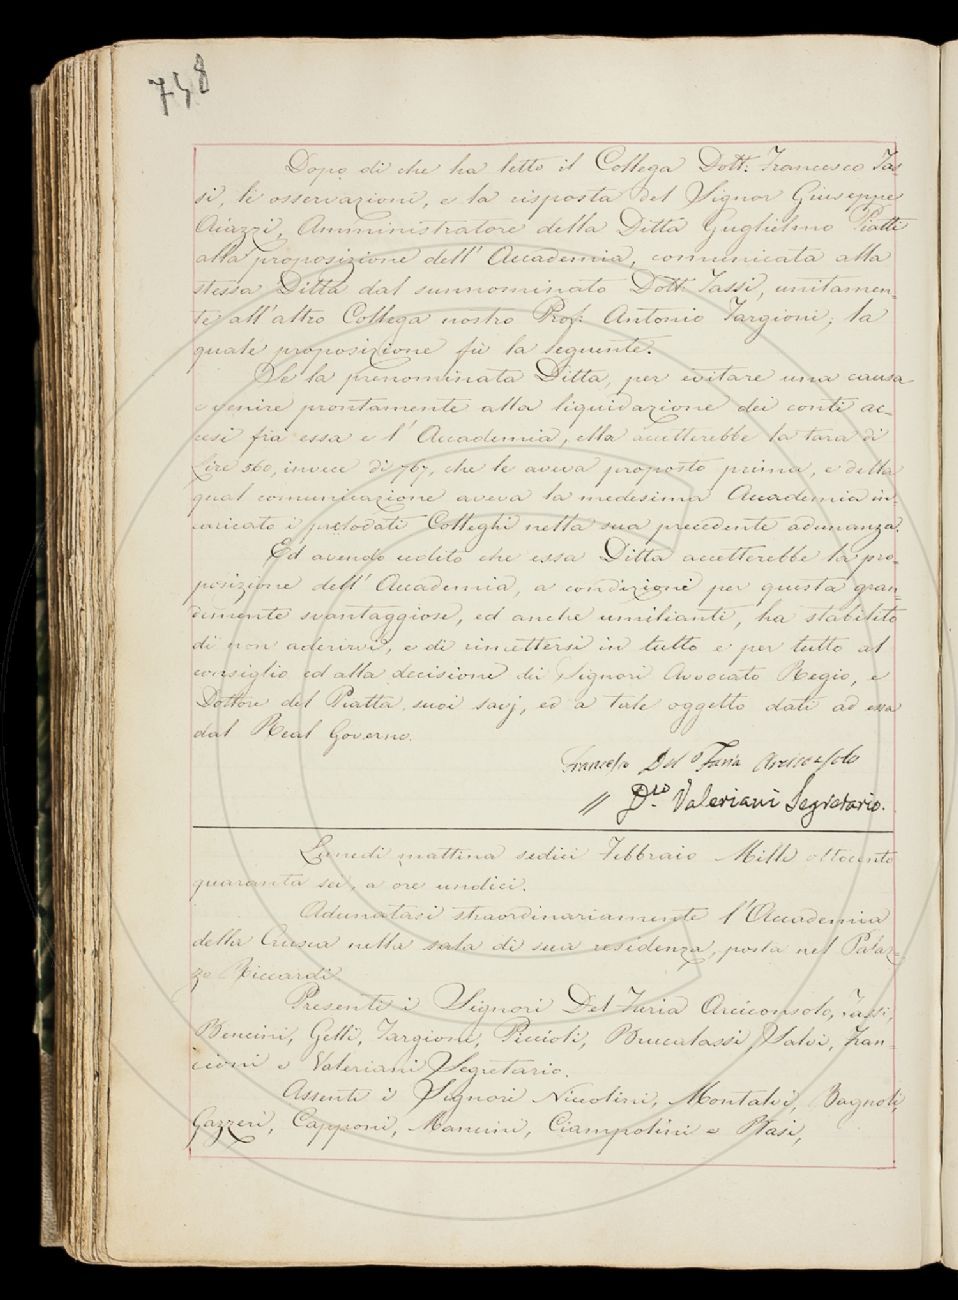 748
Dopo di che ha letto il Collega Dott. Francesco Tas-
si, le osservazioni, e la risposta del Signor Giuseppe
Aiazzi, Amministratore della Ditta Guglielmo Piatti
alla proposizione dell'Accademia, comunicata alla
stessa Ditta dal sunnominato Dott. Tassi, unitamen-
te all'altro Collega nostro Prof. Antonio Targioni; la
quale proposizione fù la seguente.
Se la prenominata Ditta, per evitare una causa
e venire prontamente alla liquidazione dei conti ac-
cesi fra essa e l'Accademia, ella accetterebbe la tara di
Lire 560, invece di 767, che le aveva proposto prima, e della
qual comunicazione aveva la medesima Accademia in-
caricato i prelodati Colleghi nella sua precedente adunanza.
Ed avendo udito che essa Ditta accetterebbe la pro-
posizione dell'Accademia, a condizioni per questa gran-
demente svantaggiose, ed anche umilianti, ha stabilito
di non aderirvi, e di rimettersi in tutto e per tutto al
consiglio ed alla decisione dei Signori Avvocato Regio, e
Dottore del Piatta, suoi savj, ed a tale oggetto dati ad essa
dal Real Governo.
Francesco Del Furia Arciconsolo
// D.co Valeriani Segretario.
Lunedi mattina sedici Febbraio Mille ottocento
quaranta sei, a ore undici.
Adunatasi straordinariamente l'Accademia
della Crusca nella sala di sua residenza, posta nel Palaz-
zo Riccardi
Presenti i Signori Del Furia Arciconsolo, Tassi,
Bencini, Gelli, Targioni, Piccioli, Brucalassi, Salvi, Fran-
cioni e Valeriani Segretario.
Assenti i Signori Niccolini, Montalvi, Bagnoli,
Gazzeri, Capponi, Mancini, Ciampolini e Masi,